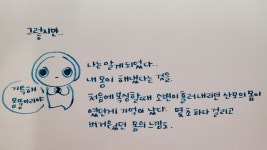 그렇지만..
나는 알게 되었다..
내 몸이 해냈다는 것을.
처음에 복식할때 소변이 흘러내리던 산모의 몸이
였단게 기억이 났다. 몇초 하다 걸리고
버거웠던 몸의 느낌도.
기특해